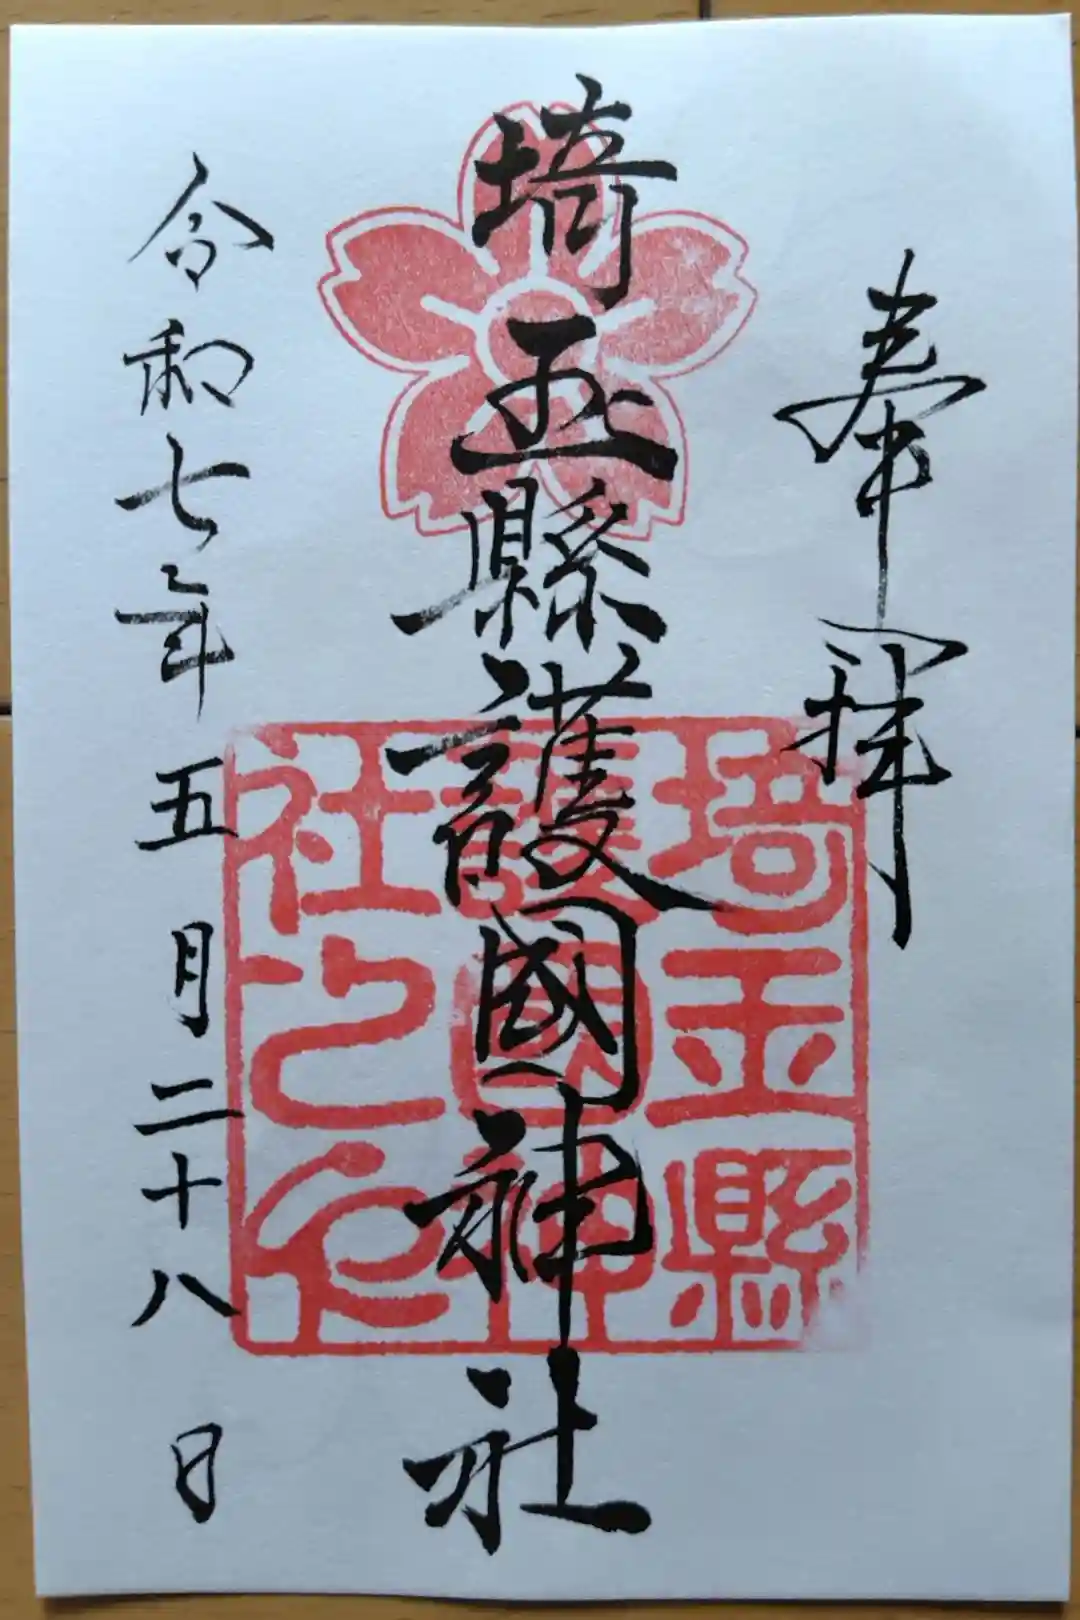 奉拝
埼玉縣護國神社
令和七年五月二十八日
埼玉縣
護國神
社之印